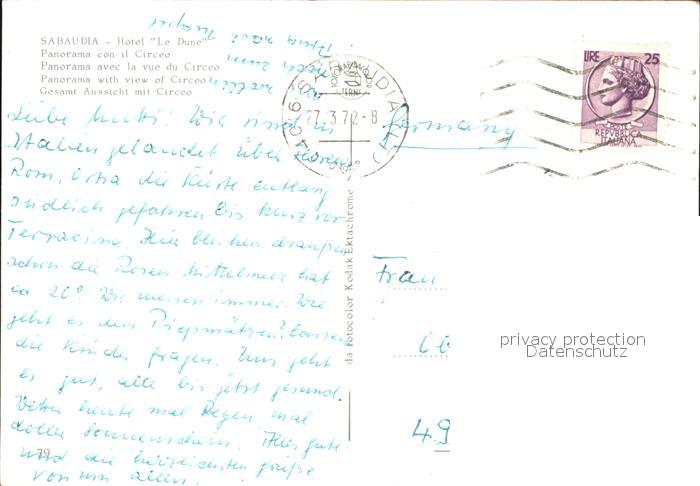 SABAUDIA - Hotel "Le Dune"
Panorama con il Circeo
Panorama avec la vue du Circeo
Panorama with view of Circeo
Gesamt Aussicht mit Circeo
Liebe Mutti! Wir sind in
Italien gelandet über
Rom, Ostia die Küste entlang
südlich gefahren bis kurz vor
Terracina. Hier blühen draußen
schon die Rosen Mittelmeer hat
ca 20° Wir immer. Wie
geht es den Piepmätzen? lassen
die Kinder fragen. Uns geht
es gut, alle bis jetzt gesund.
Wetter heute mal Regen mal
doller Sonnenschein. Alles gute
und die herzlichsten Grüße
von uns allen.
wir wollen
noch zum
nach Neapel
79
da fotocolor Kodak Ektachrome
27.3.72-8
LIRE 25
POSTE
REPVBBLICA
ITALIANA
Germany
Frau
49
privacy protection
Datenschutz